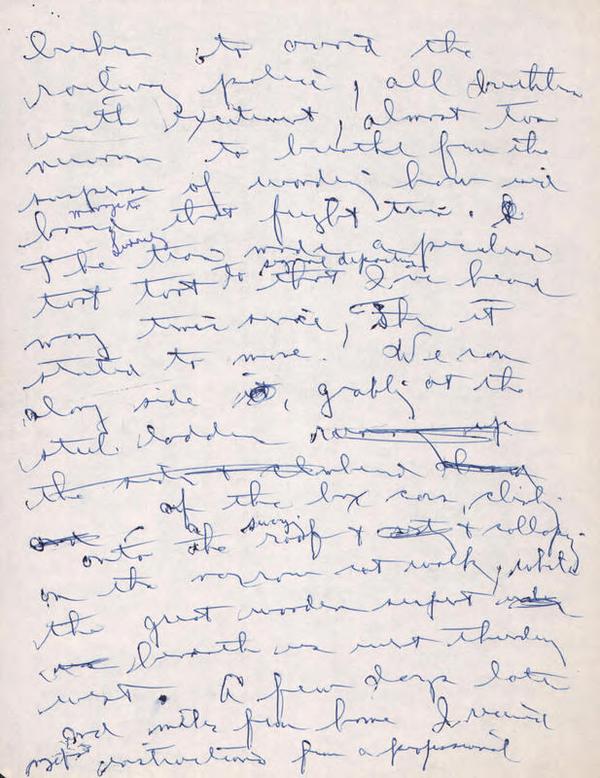 bushes to avoid the
railway police, all breathless
with excitement, almost too
nervous to breathe from the
suspense of wondering how we'd
manage to
board that freight train.
The train made a peculiar
signal departure
toot toot to that I've heard
many times since, then it
started to move. We ran
along side it, grabbing at the
steel ladder running up
the side & climbed
of the box cars, climbing
swaying
onto the roof & & collapsing
on the narrow cat walk, while
the great wooden serpent
beneath us went thundering
west. A few days later
and miles from home I received
instructions from a professional